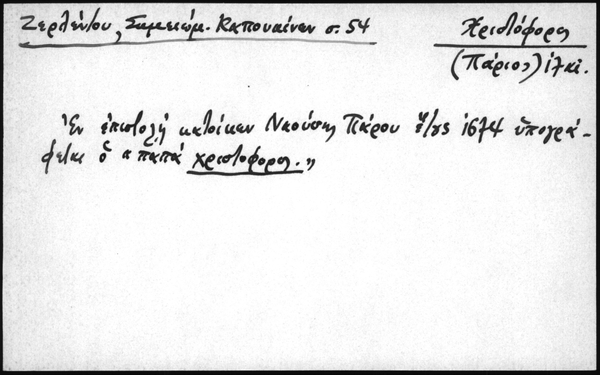 Ζερλέντου, Σημειώμ. Καπουκίνων σ. 54
Χριστόφορος
(Πάριος)
Ἐν ἐπιστολῇ κατοίκων Ναούσης Πάρου ἔτους 1674 ὑπογρά-
φεται ὁ "παπᾶ χριστοφορος."